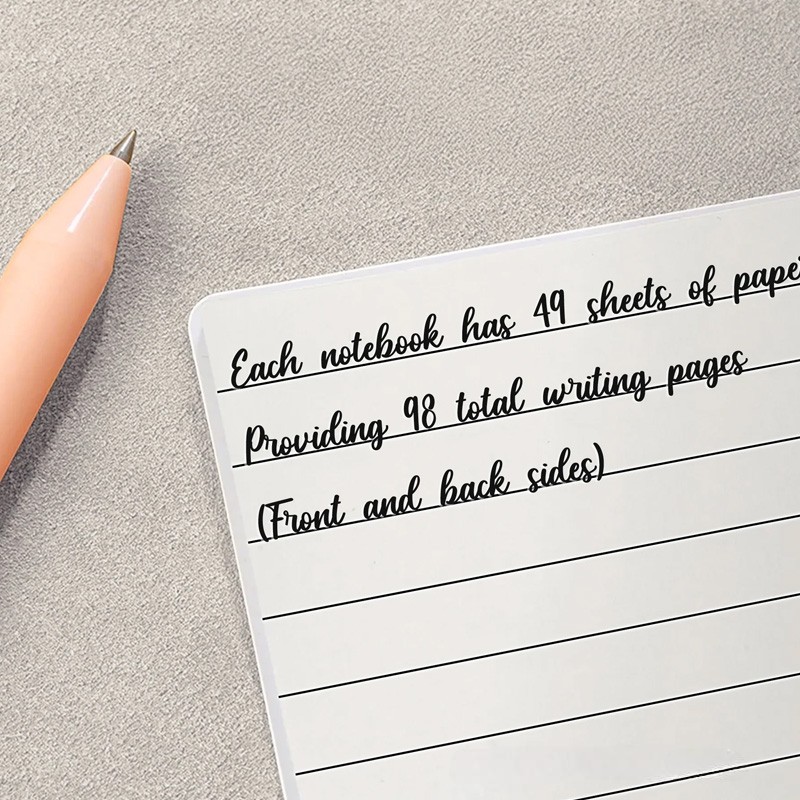 Each notebook has 49 sheets of paper
Providing 98 total writing pages
(Front and back sides)